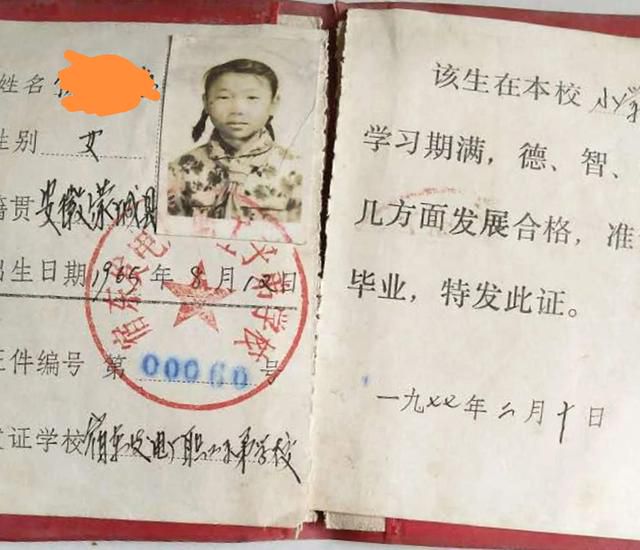 姓名
性别 女
籍贯 安徽濉溪县
出生日期 1965 年 8 月 12 日
证件编号 第 00060 号
发证学校 宿东发电厂职工子弟学校
该生在本校 小学
学习期满，德、智、
几方面发展合格，准
毕业，特发此证。
一九七七年二月十日